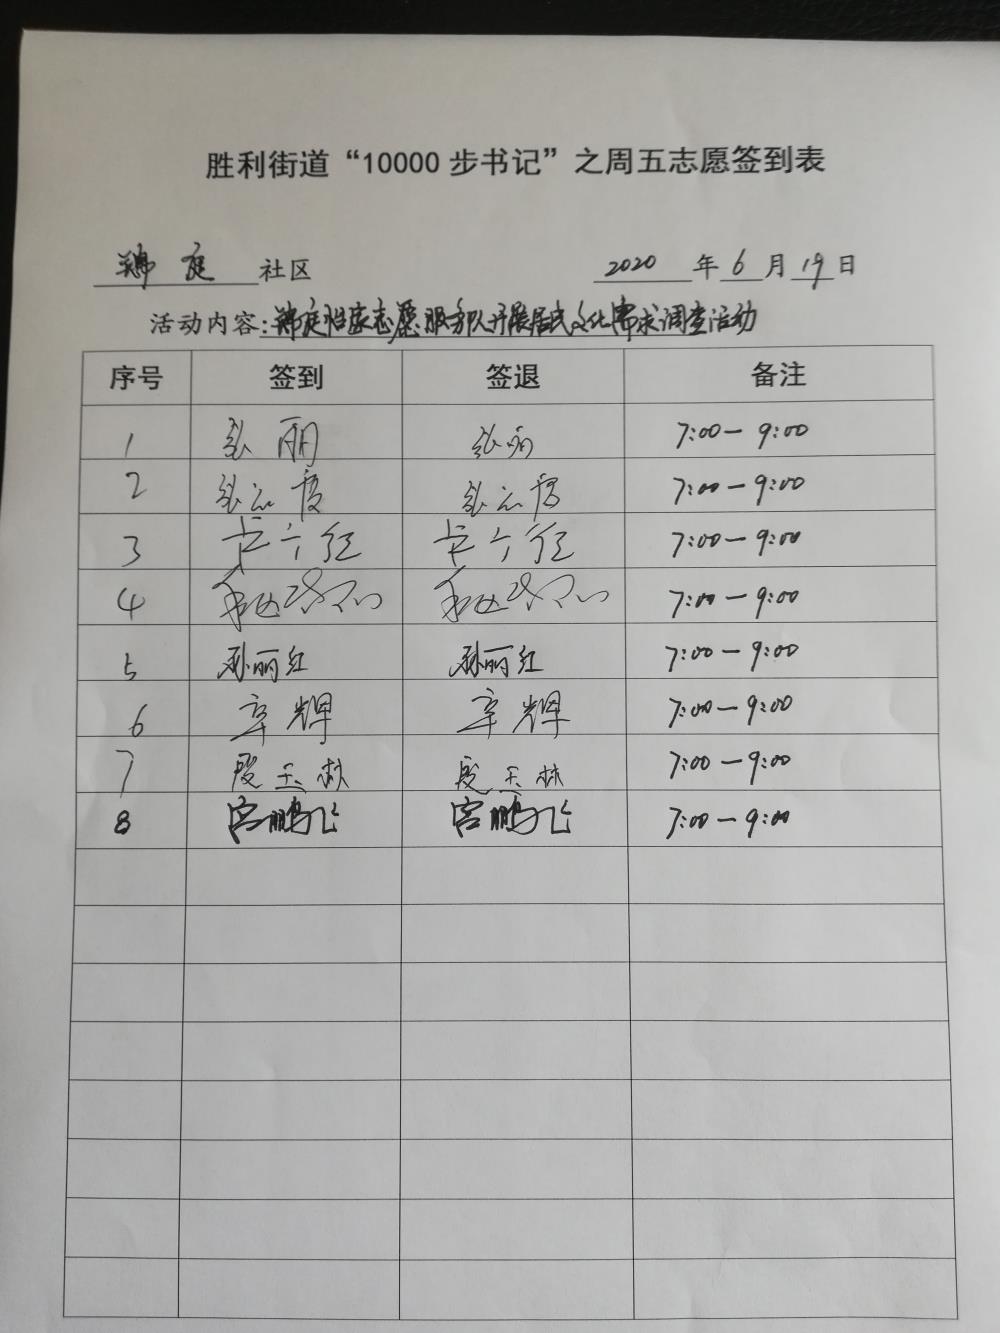 胜利街道“10000步书记”之周五志愿签到表
锦庭社区 2020年6月19日
活动内容:锦庭怡家志愿服务队开展居民文化需求调查活动
序号 签到 签退 备注
1 张丽 张丽 7:00-9:00
2 张 张 7:00-9:00
3 7:00-9:00
4 7:00-9:00
5 孙丽红 孙丽红 7:00-9:00
6 辛辉 辛辉 7:00-9:00
7 段玉林 段玉林 7:00-9:00
8 宫鹏飞 宫鹏飞 7:00-9:00